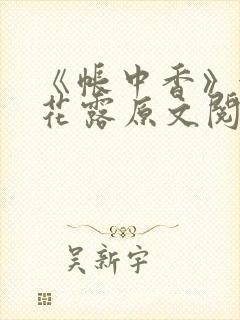 《帐中香》
花露原文阅
吴新宇